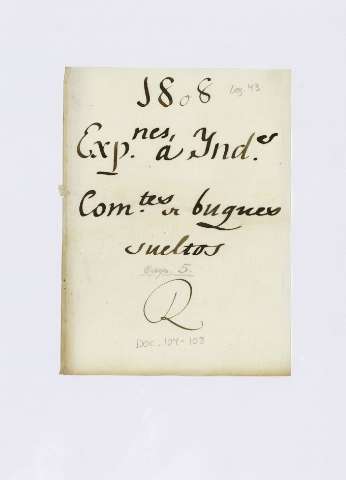 1808 Leg. 43
Exp.nes á Ynd.s
Com.tes a buques
sueltos
Carp. 5.
R
Doc. 104-108